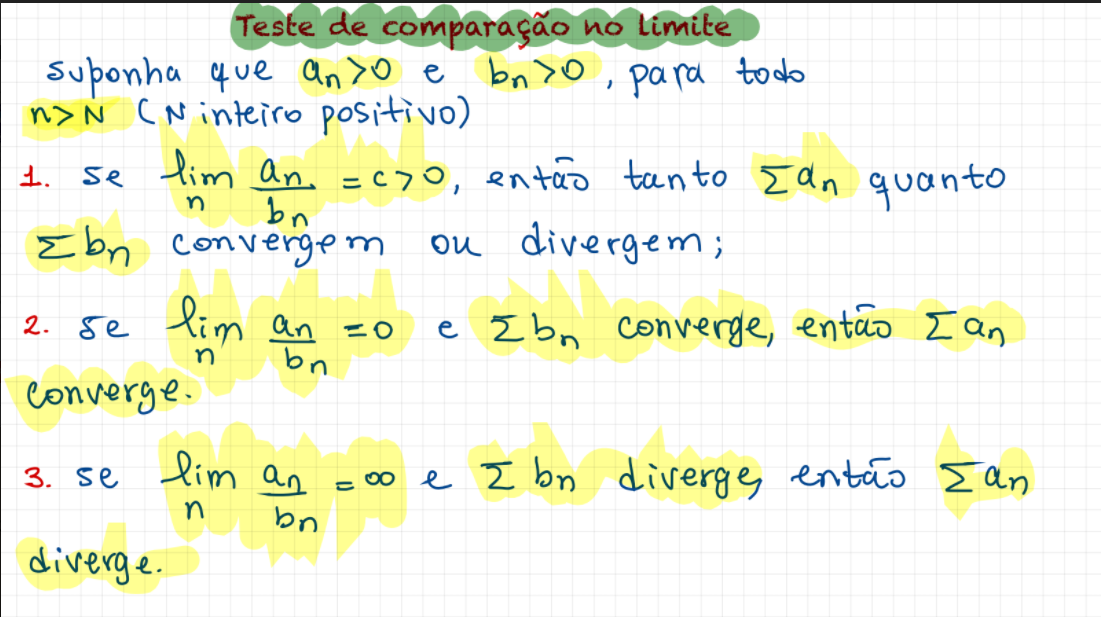 Teste de comparação no limite
suponha que aₙ>0 e bₙ>0, para todo
n>N (N inteiro positivo)
1. se lim_n aₙ/bₙ = c>0, então tanto Σaₙ quanto
Σbₙ convergem ou divergem;
2. se lim_n aₙ/bₙ =0 e Σbₙ converge, então Σaₙ
converge.
3. se lim_n aₙ/bₙ =∞ e Σbₙ diverge, então Σaₙ
diverge.